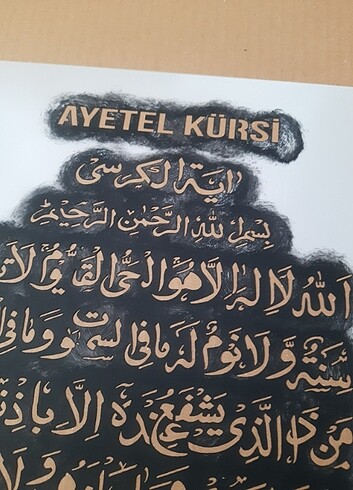 AYETEL KÜRSİ
اية الكرسى
بسم الله الرحمن الرحيم
الله لا اله الا هو الحى القيوم لا
سنة ولا نوم له ما فى السموت وما فى
من ذا الذى يشفع عنده الا باذنه